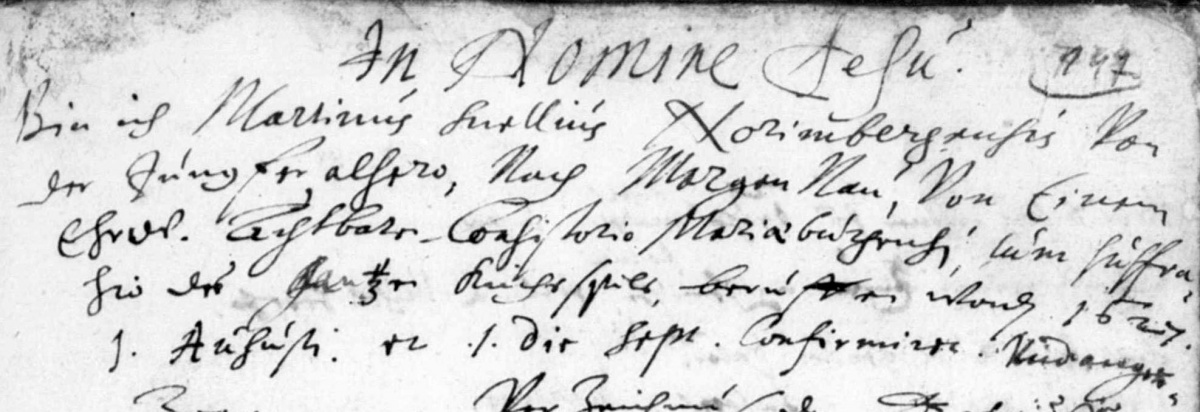 In Nomine Jesu. 147
Bin ich Martinus Snellius Norimbergensis Von
der Jungfer alhero, Nach Morgen Nau, Von Einem
Ehrw. Achtbare Consistorio Mariaeburgensi, zum suffra-
gio des gantze Kirchspils, beruffen word. 1627.
1. Augusti. et 1. Die Sept. Confirmiret. Und ange
Ver Zeichnus